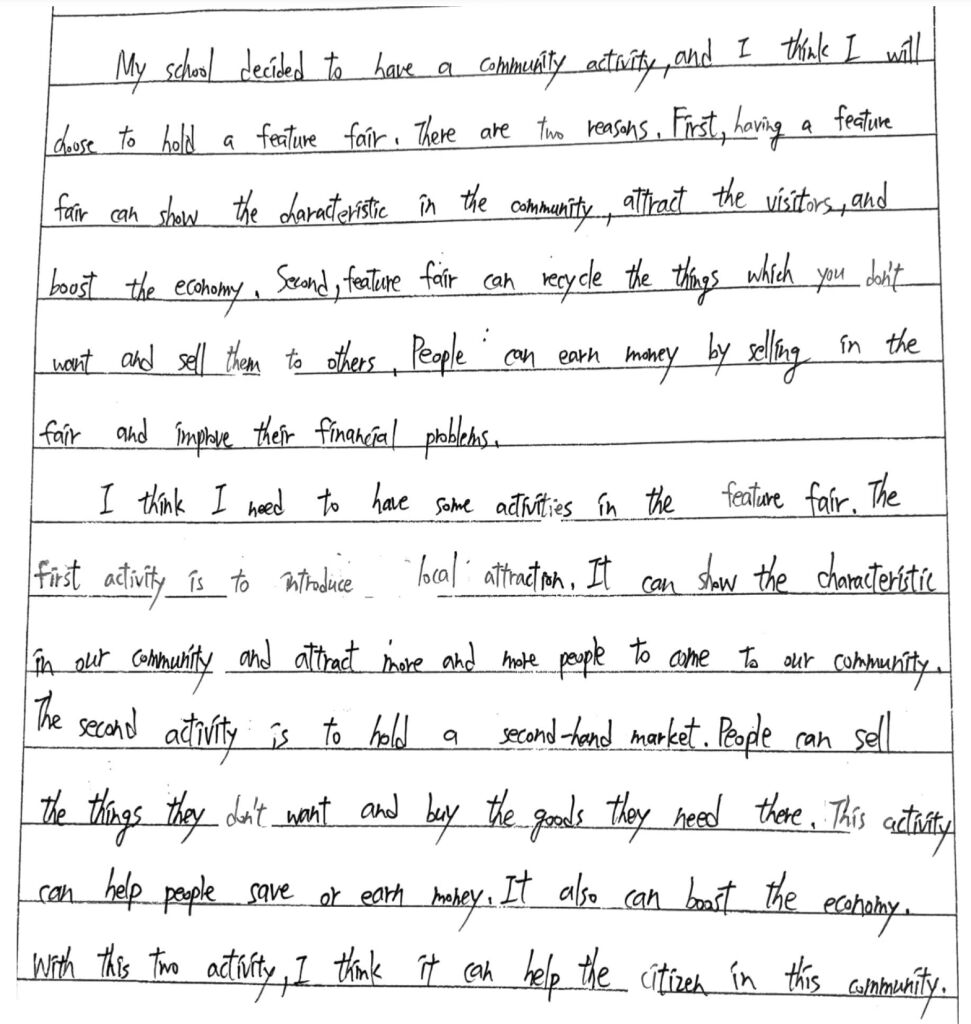 My school decided to have a community activity, and I think I will
choose to hold a feature fair. There are two reasons. First, having a feature
fair can show the characteristic in the community, attract the visitors, and
boost the economy. Second, feature fair can recycle the things which you don't
want and sell them to others. People can earn money by selling in the
fair and improve their financial problems.
I think I need to have some activities in the feature fair. The
first activity is to introduce local attraction. It can show the characteristic
in our community and attract more and more people to come to our community.
The second activity is to hold a second-hand market. People can sell
the things they don't want and buy the goods they need there. This activity
can help people save or earn money. It also can boost the economy.
With this two activity, I think it can help the citizen in this community.